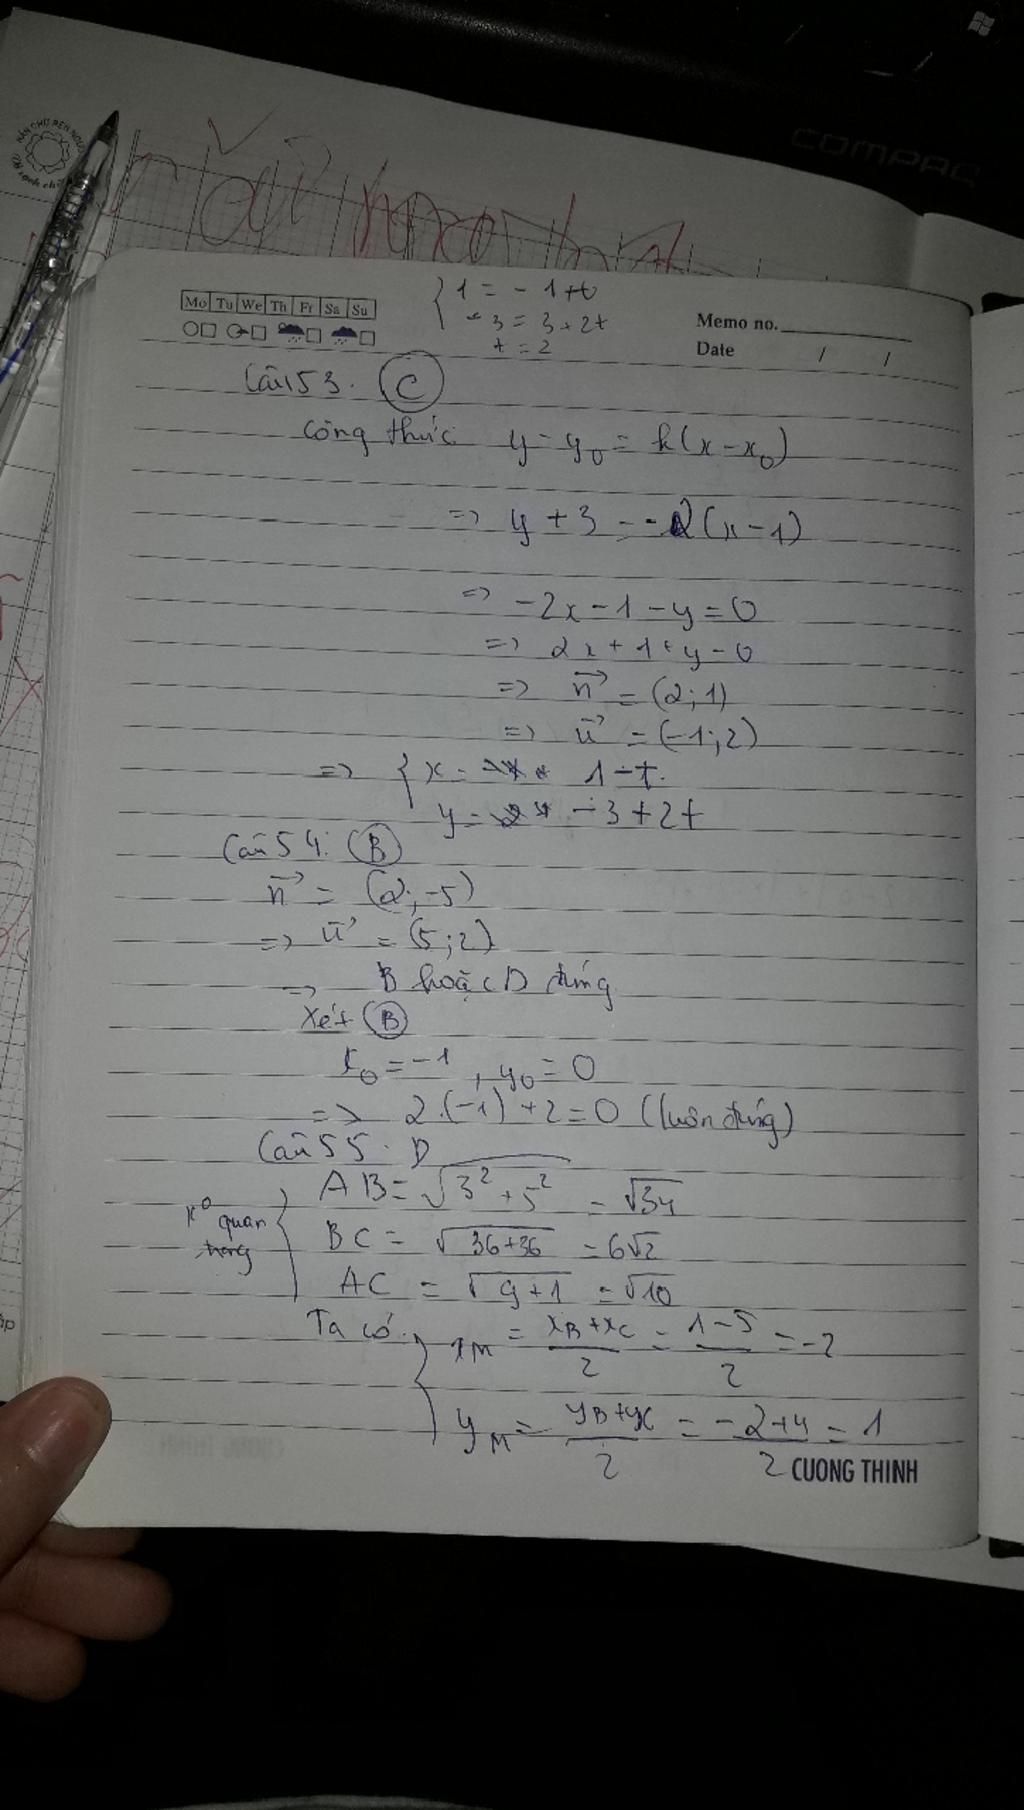 COMPAQ
Mo Tu We Th Fr Sa Su
Memo no.
Date / /
{ 1 = - 1+t
- 3 = 3 + 2t
t = 2
Câu 53. C
Công thức y - y₀ = k(x - x₀)
=> y + 3 = -2(x - 1)
=> -2x - 1 - y = 0
=> 2x + 1 + y = 0
=> n⃗ = (2; 1)
=> u⃗ = (-1; 2)
=> { x = 1 - t.
y = - 3 + 2t
Câu 54: B
n⃗ = (2; -5)
=> u⃗ = (5; 2)
=> B hoặc D đúng
Xét B
x₀ = -1, y₀ = 0
=> 2.(-1) + 2 = 0 (luôn đúng)
Câu 55. D
AB = √3² + 5² = √34
k⁰ quan trọng { BC = √36+36 = 6√2
AC = √9+1 = √10
Ta có { xM = xB + xC / 2 = 1 - 5 / 2 = -2
yM = yB + yC / 2 = -2+4 / 2 = 1
CUONG THINH